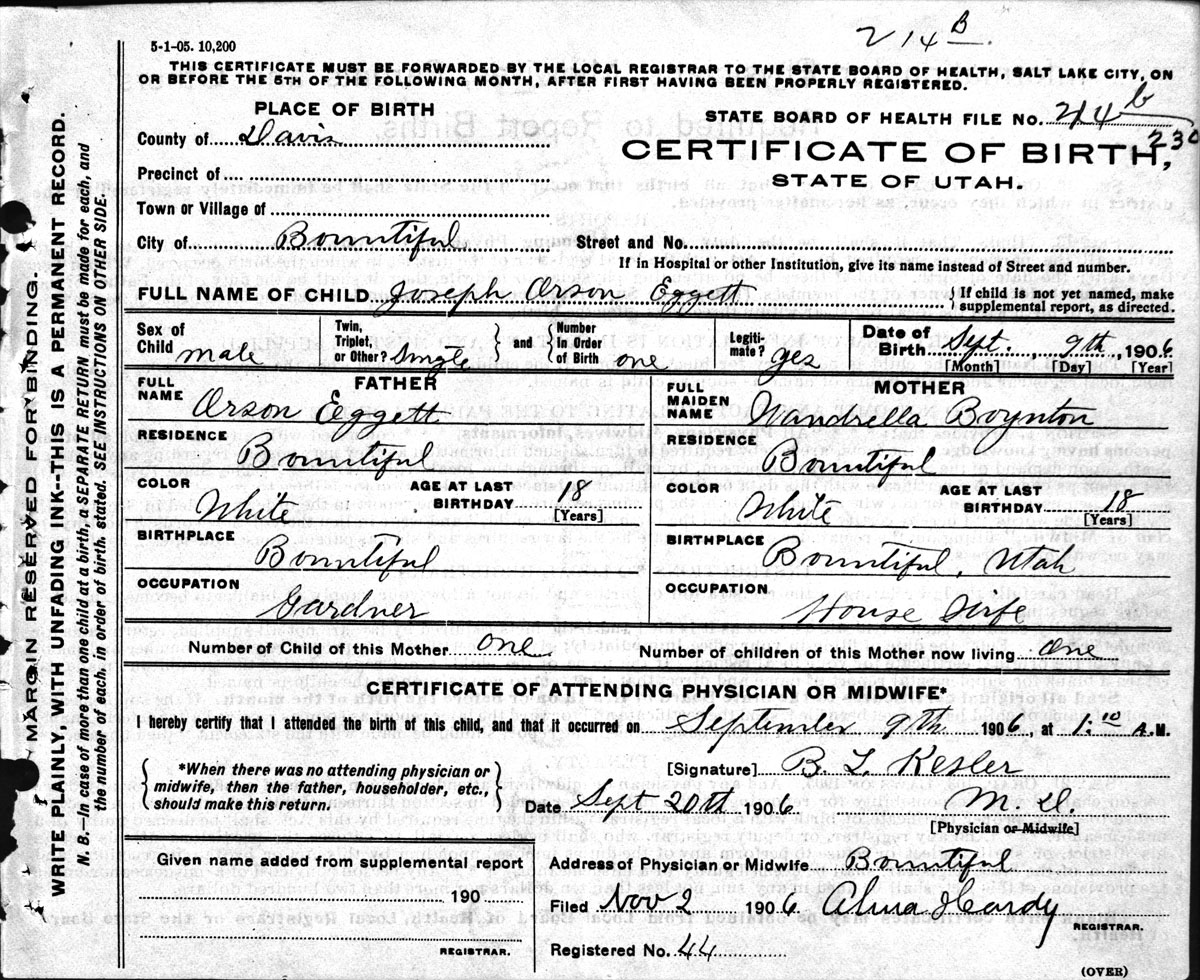 214 B.
5-1-05. 10,200
THIS CERTIFICATE MUST BE FORWARDED BY THE LOCAL REGISTRAR TO THE STATE BOARD OF HEALTH, SALT LAKE CITY, ON
OR BEFORE THE 5TH OF THE FOLLOWING MONTH, AFTER FIRST HAVING BEEN PROPERLY REGISTERED.
PLACE OF BIRTH
STATE BOARD OF HEALTH FILE NO. 44 b
County of Davis
230
CERTIFICATE OF BIRTH,
Precinct of
STATE OF UTAH.
Town or Village of
City of Bountiful Street and No.
If in Hospital or other Institution, give its name instead of Street and number.
FULL NAME OF CHILD Joseph Orson Eggett { If child is not yet named, make
supplemental report, as directed.
Sex of Child male Twin, Triplet, or Other? Single } and { Number In Order of Birth one Legiti-mate? yes Date of Birth Sept. , 9th , 1906
[Month] [Day] [Year]
FATHER
FULL NAME Orson Eggett
RESIDENCE
Bountiful
COLOR White AGE AT LAST BIRTHDAY 18
[Years]
BIRTHPLACE
Bountiful
OCCUPATION
Gardner
MOTHER
FULL MAIDEN NAME Wandrella Boynton
RESIDENCE
Bountiful
COLOR White AGE AT LAST BIRTHDAY 18
[Years]
BIRTHPLACE
Bountiful, Utah
OCCUPATION
House Wife
Number of Child of this Mother one Number of children of this Mother now living one
CERTIFICATE OF ATTENDING PHYSICIAN OR MIDWIFE*
I hereby certify that I attended the birth of this child, and that it occurred on September 9th 1906, at 1:10 A.M.
{ *When there was no attending physician or
midwife, then the father, householder, etc.,
should make this return. }
[Signature] B. L. Kesler
Date Sept 20th 1906. M. D.
[Physician or Midwife]
Given name added from supplemental report
190
REGISTRAR.
Address of Physician or Midwife Bountiful
Filed Nov 2 1906 Alma Hardy
REGISTRAR.
Registered No. 44
(OVER)
MARGIN RESERVED FOR BINDING.
WRITE PLAINLY, WITH UNFADING INK--THIS IS A PERMANENT RECORD.
N. B.--In case of more than one child at a birth, a SEPARATE RETURN must be made for each, and
the number of each, in order of birth, stated. SEE INSTRUCTIONS ON OTHER SIDE.